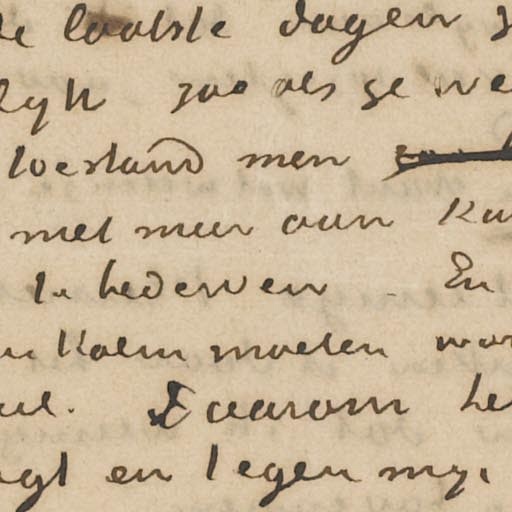 de laatste dagen
lyk zoo als ge
toestand men
niet meer aan
te bederven En
Kalm moeten
Daarom he
en tegen my